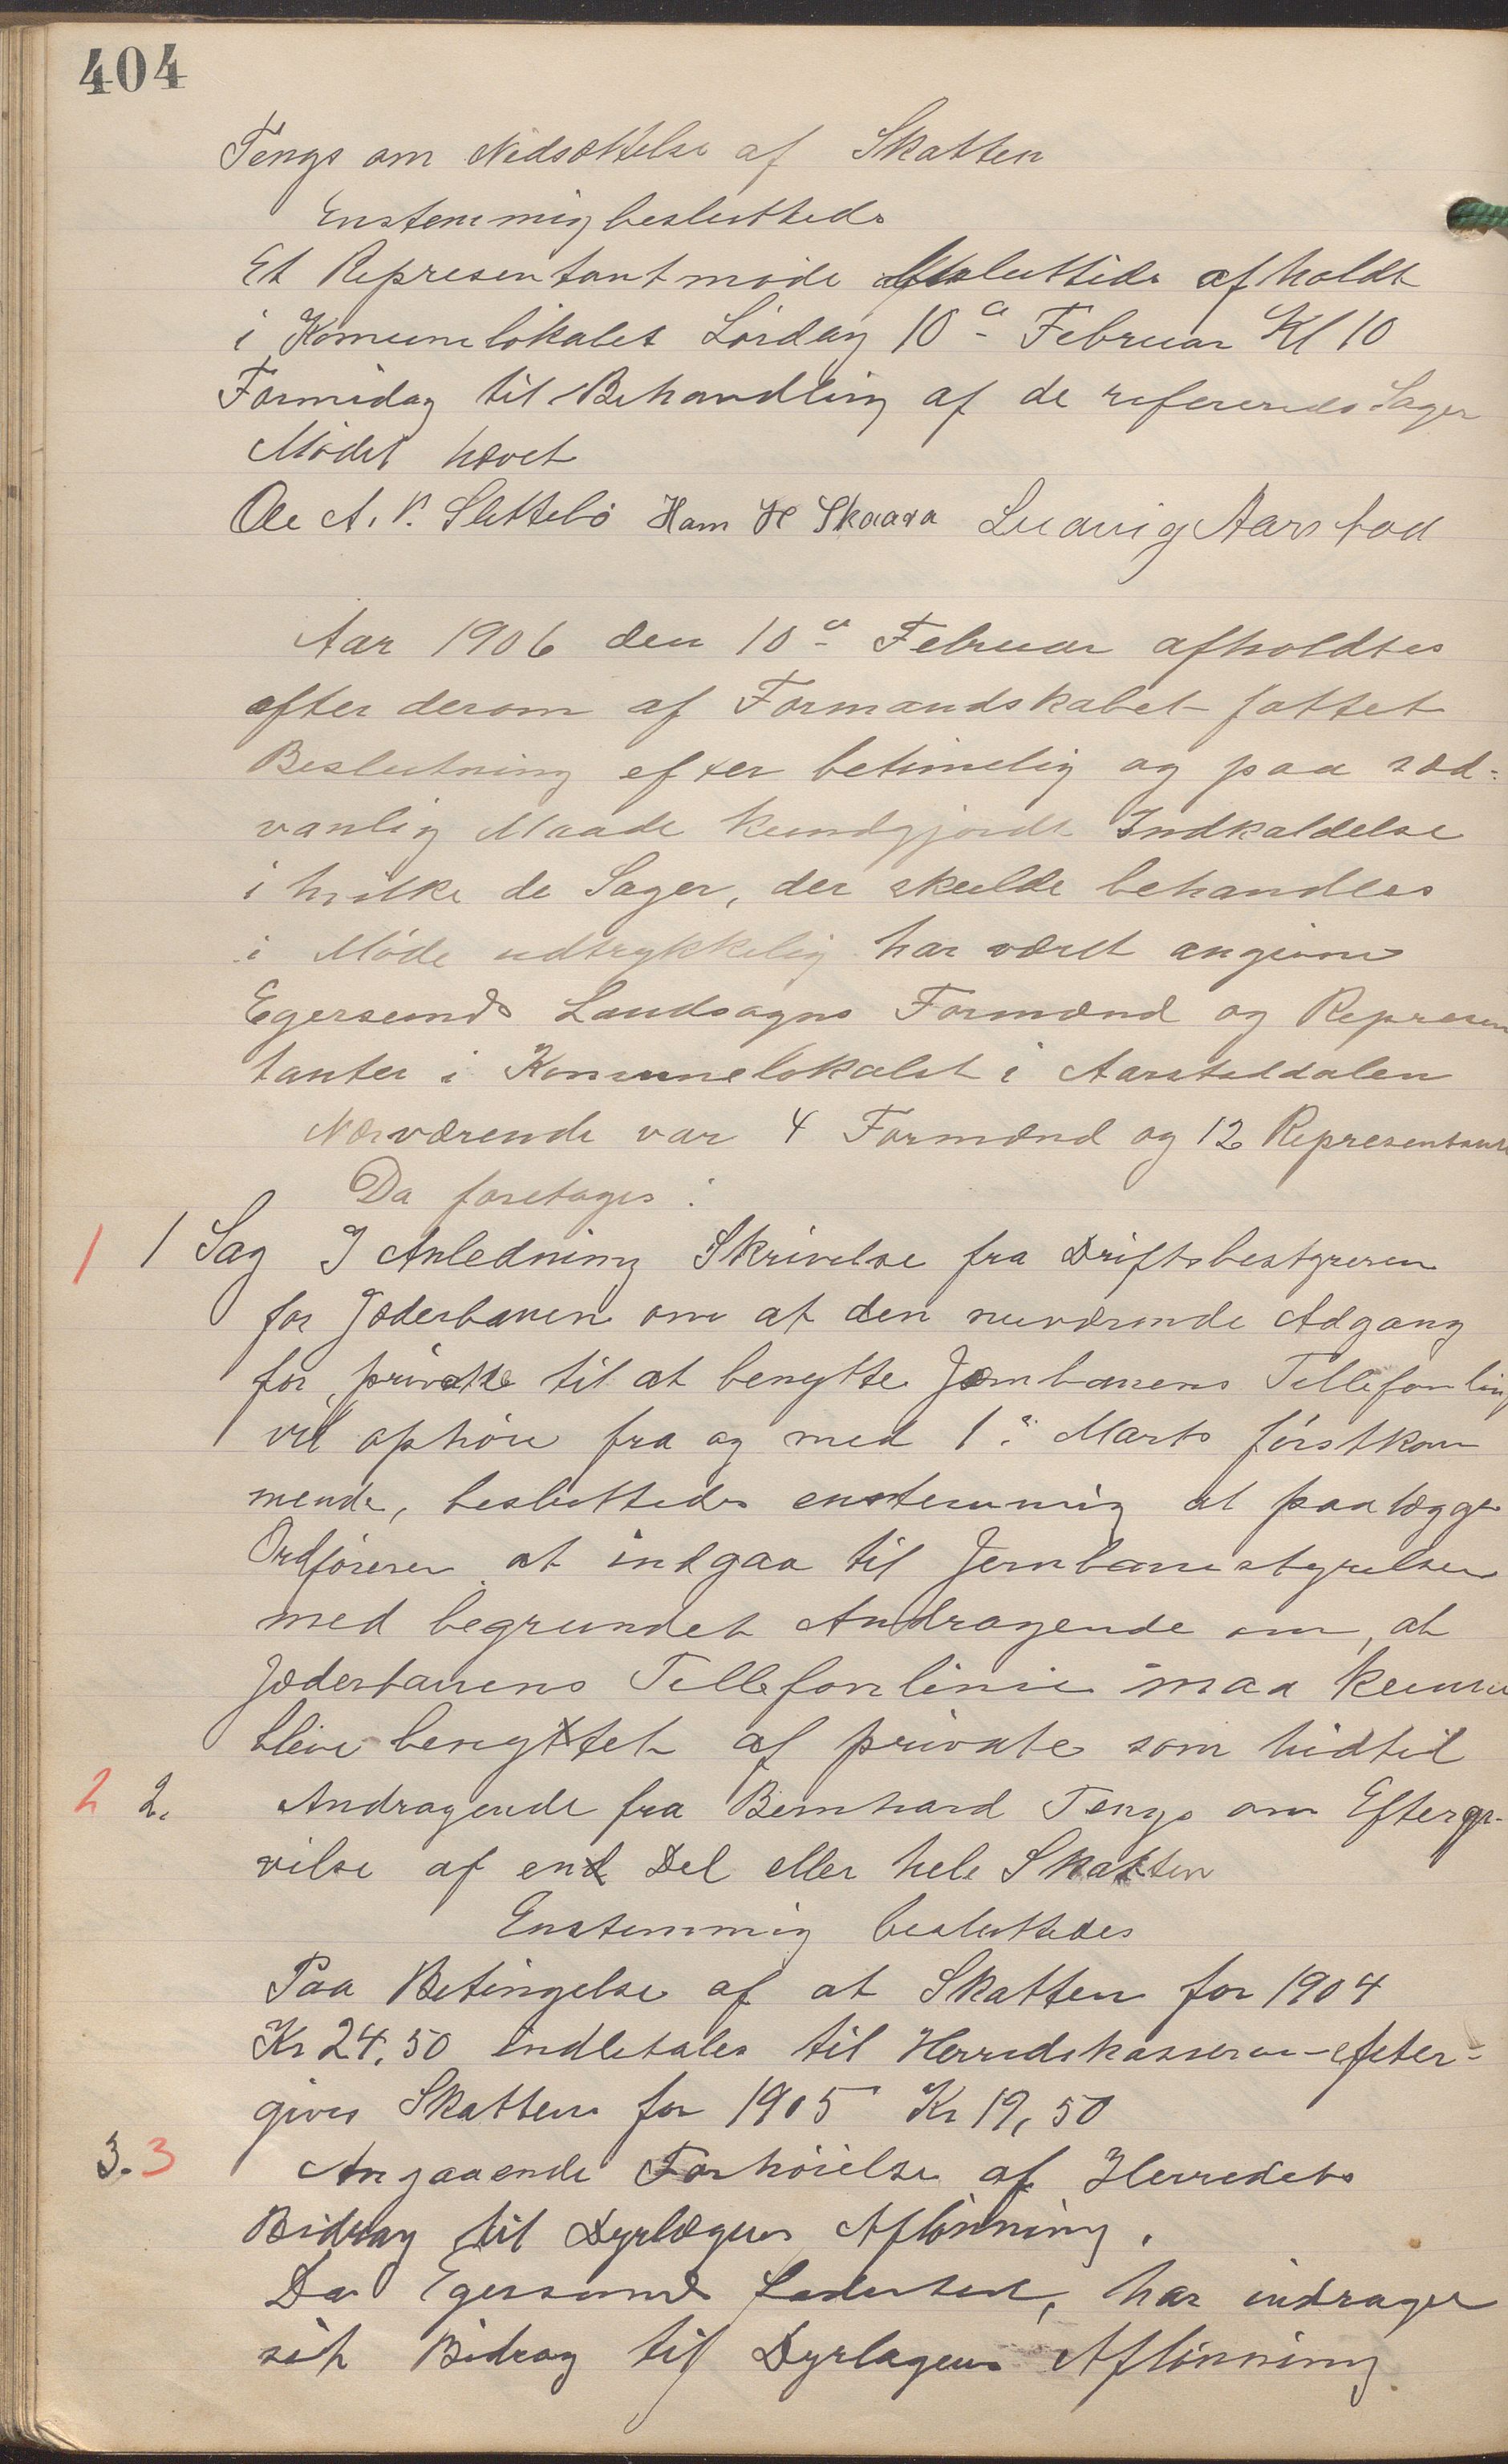 404
Tengs om Nedsættelse af Skatten
Enstemmig besluttedes
Et Representantmøde besluttedes afholdt
i Komunelokalet Lørdag 10de Februar Kl 10
Formidag til Behandling af de refererede Sager
Mødet hævet
Ole A. V. Slettebø Hans H Skaara Ludvig Aarstad
Aar 1906 den 10de Februar afholdtes
efter derom af Formandskabet fattet
Beslutning efter betimelig og paa sæd-
vanlig Maade kundgjordt Indkaldelse
i hvilke de Sager, der skulde behandles
i Møde udtrykkelig har været angivne
Egersunds Landsogns Formænd og Represen
tanter i Komunelokalet i Aarstaddalen
Nærværende var 4 Formænd og 12 Representanter
Da foretages:
1 1 Sag I Anledning Skrivelse fra Driftsbestyreren
for Jæderbanen om at den nuværende Adgang
for private til at benytte Jernbanens Tellefonlinj
vil ophøre fra og med 1ste Marts førstkom
mende, besluttedes enstemmig at paalægge
Ordføreren at indgaa til Jernbanestyrelsen
med begrundet Andragende om, at
Jæderbanens Tellefonlinie maa kunne
blive benyttet af private som hidtil
2 2. Andragende fra Bernhard Tengs om Efterg-
vilse af end Del eller hele Skatten
Enstemmig besluttedes
Paa Betingelse af at Skatten for 1904
Kr 24,50 indbetales til Herredskasseren efter-
gives Skatten for 1905 Kr 19,50
3. 3 Angaaende Forhøielse af Herredets
Bidrag til Dyrlægens Aflønning.
Da Egersund Ladested, har indraget
sit Bidrag til Dyrlagens Aflønning